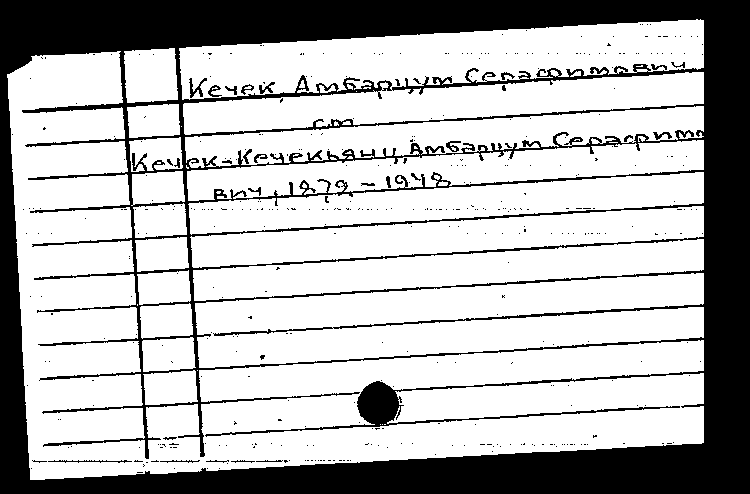 Кечек, Амбарцум Серафимович
см
Кечек-Кечекьянц, Амбарцум Серафимо
вич, 1879 - 1948